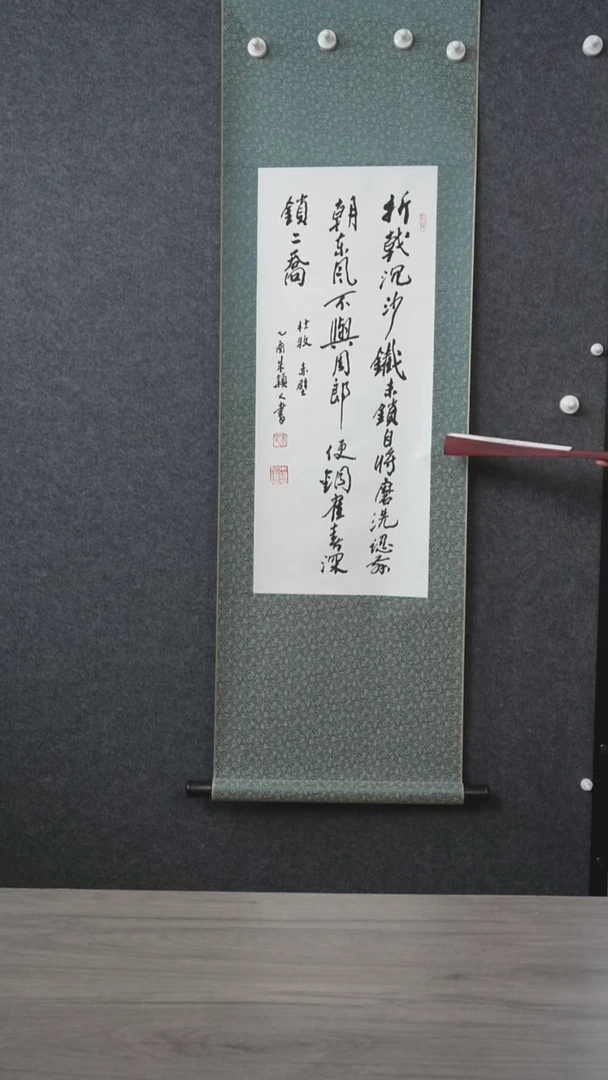 折戟沉沙鐵未銷自將磨洗認前
朝东風不與周郎便銅雀春深
鎖二喬
杜牧 赤壁
乙酉朱穎人書